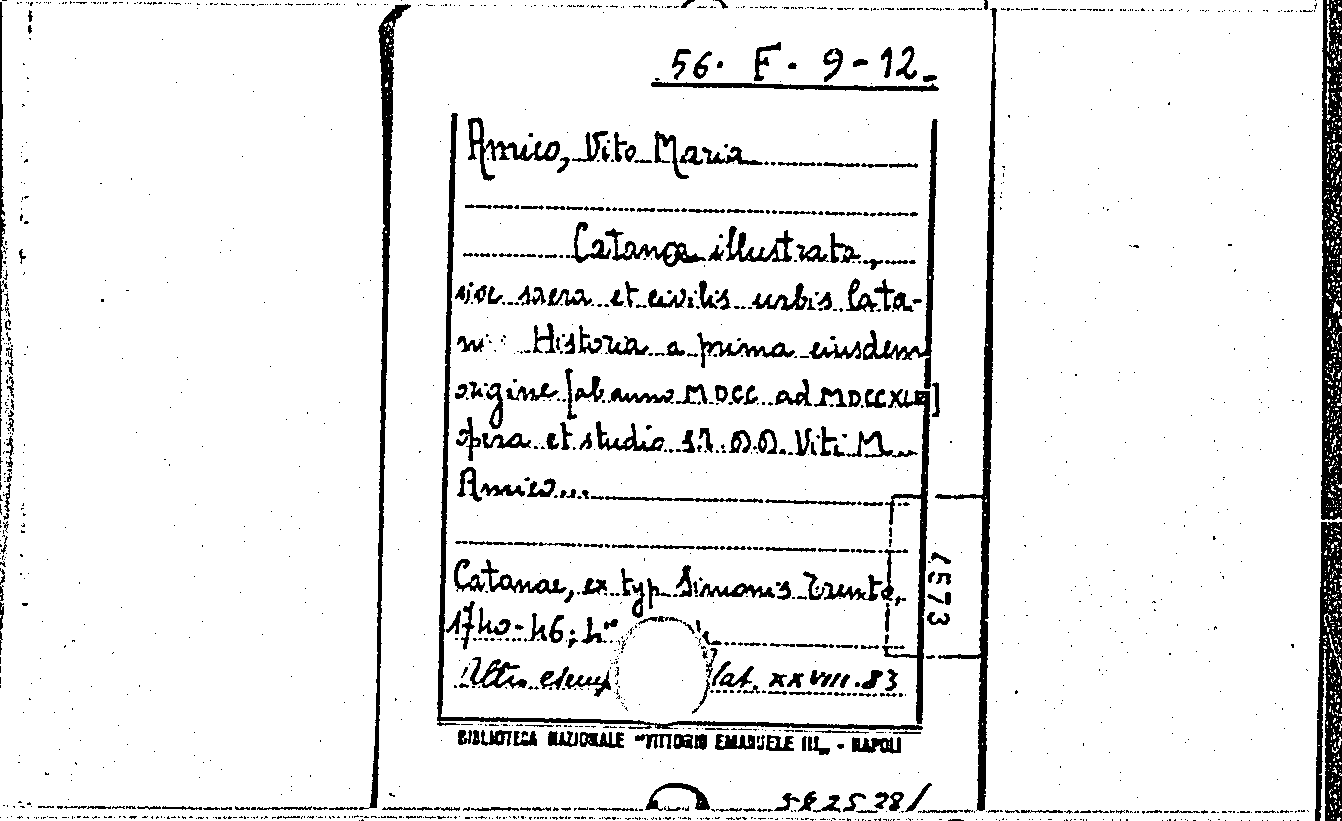 56. F. 9-12
Amico, Vito Maria
Catana illustrata,
sive sacra et civilis urbis Cata-
Historia a prima eiusdem
origine [ab anno MDCC ad
opera et studio D.D. Viti M.
Amico...
Catanae, ex typ Simonis Trento,
1740-46; 4°
Altro esemp lat. XXVIII.83
BIBLIOTECA NAZIONALE "VITTORIO EMANUELE III„ - NAPOLI
1573
562528/